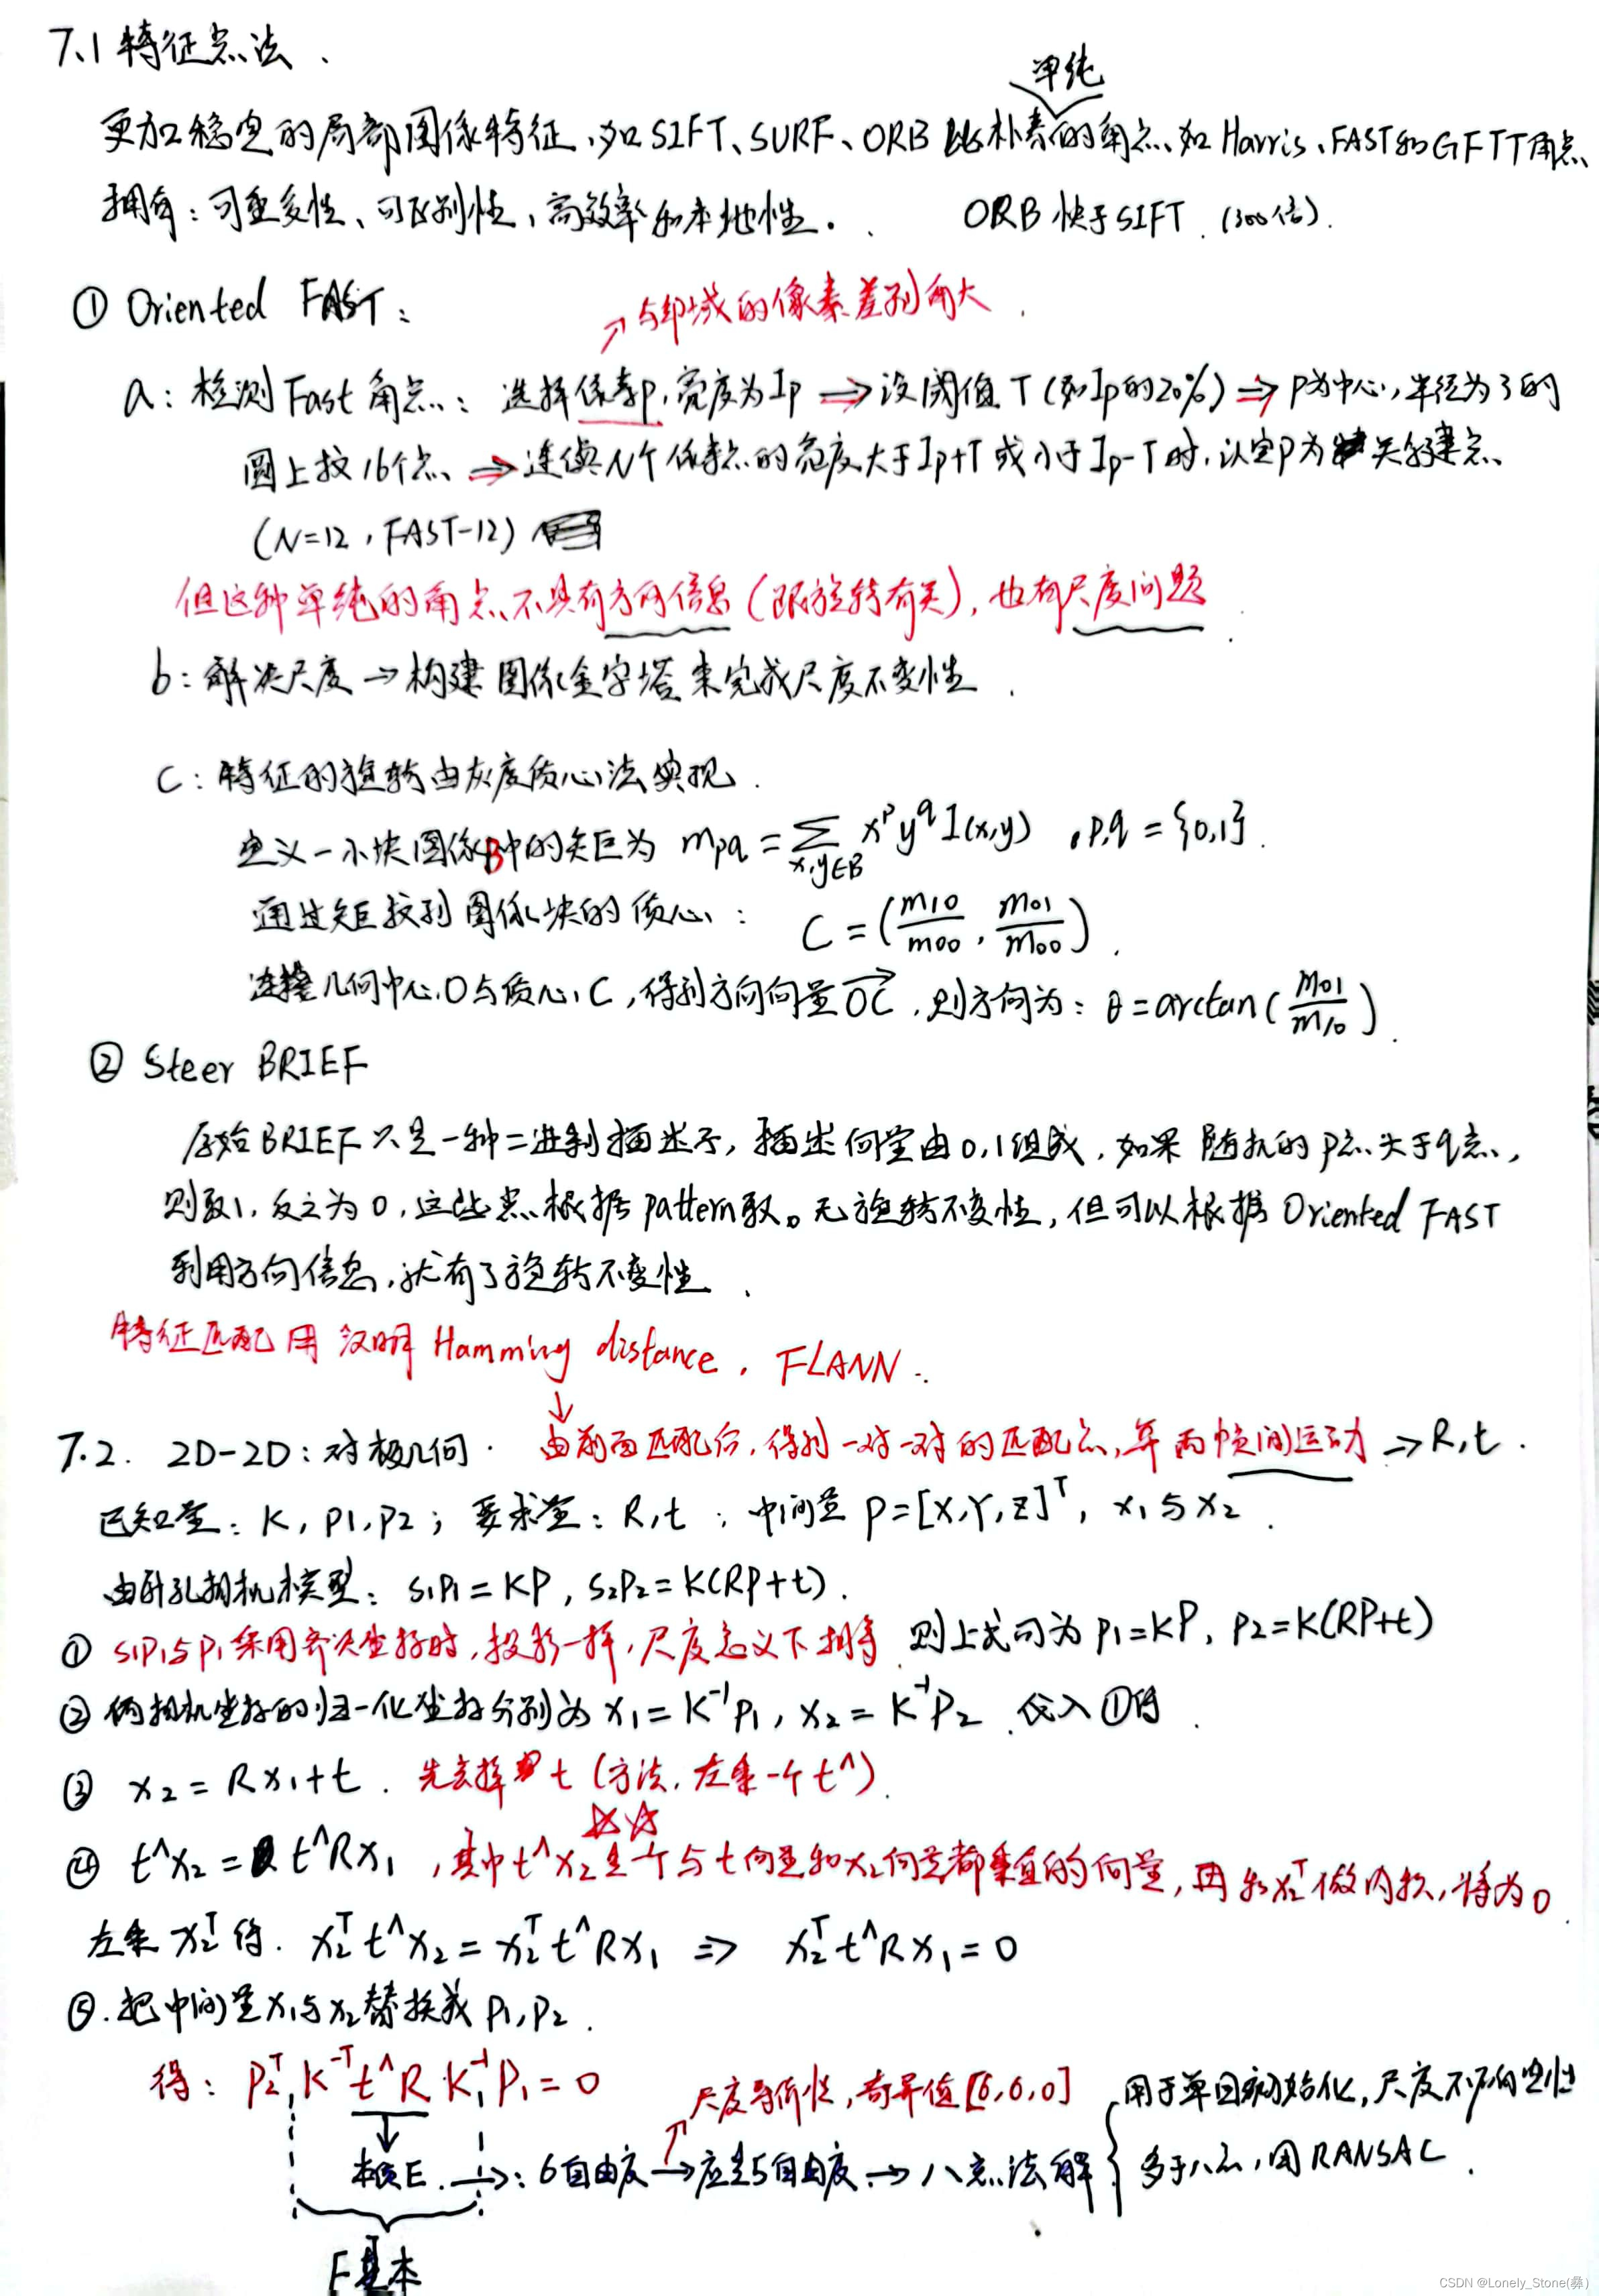 7.1 特征点法.
单纯
更加稳定的局部图像特征,如SIFT、SURF、ORB 比朴素的角点、如Harris、FAST和GFTT角点
拥有:可重复性、可区别性,高效率和本地性. ORB快于SIFT.(300倍).
① Oriented FAST:
↗与邻域的像素差别有大
a: 检测Fast角点: 选择像素p,亮度为Ip ⇒ 设阈值T(如Ip的20%) ⇒ P为中心,半径为3的
圆上找16个点 ⇒ 连续N个像素点的亮度大于Ip+T或小于Ip-T时,认定P为关键点
(N=12,FAST-12)
但这种单纯的角点不具有方向信息(跟旋转有关),也有尺度问题.
b: 解决尺度→构建图像金字塔来完成尺度不变性.
C: 特征的旋转由灰度质心法实现.
定义一小块图像B中的矩为 mpq = ∑x,y∈B x^p y^q I(x,y) ,p,q = {0,1}.
通过矩找到图像块的质心: C = (m10/m00, m01/m00).
连接几何中心O与质心C,得到方向向量OC→,则方向为: θ=arctan(m01/m10).
② Steer BRIEF
原始BRIEF只是一种二进制描述子,描述向量由0,1组成,如果随机的p点大于q点,
则取1,反之为0,这些点根据pattern取。无旋转不变性,但可以根据Oriented FAST
利用方向信息,就有了旋转不变性.
特征匹配用汉明Hamming distance, FLANN..
↓
7.2. 2D-2D:对极几何. 由前面匹配后,得到一对一对的匹配点,算两帧间运动 ⇒R,t.
已知量: K, p1,p2; 要求量: R,t ; 中间量 P=[X,Y,Z]^T, x1与x2.
由针孔相机模型: s1P1=KP, s2P2=K(RP+t).
① s1P1与P1采用齐次坐标时,投影一样,尺度意义下相等. 则上式可为 P1=KP, P2=K(RP+t)
② 俩相机坐标的归一化坐标分别为 x1=K^-1P1, x2=K^-1P2. 代入①得.
③ x2=Rx1+t. 先去掉t (方法,左乘一个t^).
☆☆
④ t^x2= t^Rx1 ,其中t^x2是一个与t向量和x2向量都垂直的向量,再和x2^T做内积,将为0.
左乘x2^T得. x2^T t^x2=x2^T t^Rx1 ⇒ x2^T t^Rx1=0
⑤.把中间量x1与x2替换成P1,P2.
得: P2^T K^-T t^R K^-1 P1=0
尺度等价性,奇异值[δ,δ,0]
用于单目初始化,尺度不确定性
本质E. →: 6自由度→应是5自由度→八点法解{ 多于八点,用RANSAC.
F基本
CSDN @Lonely_Stone(彝)